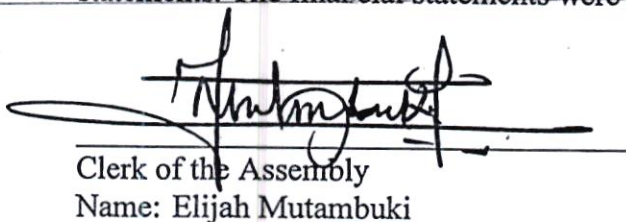 Mutambuki
Clerk of the Assembly
Name: Elijah Mutambuki